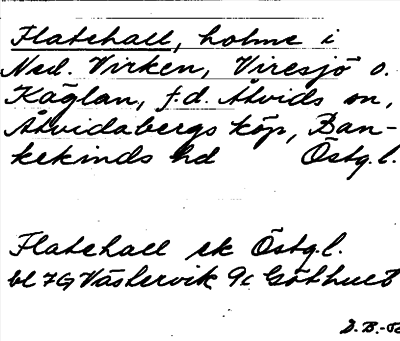 Flatehall, holme i
Ned. Virken, Viresjö o.
Käglan, f.d. Åtvids sn,
Åtvidabergs köp, Ban-
kekinds hd Östg.l.
Flatehall ek Östg.l.
bl 7G Västervik 9c Göthult
D.B.-